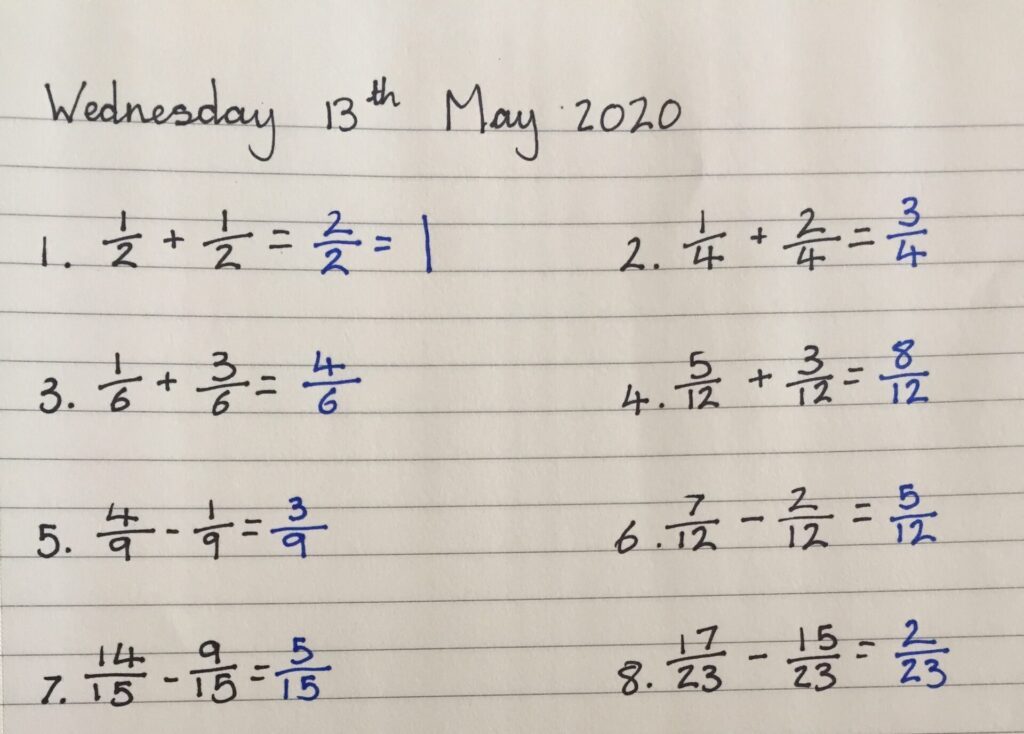 Wednesday 13th May 2020
1. 1/2 + 1/2 = 2/2 = 1 2. 1/4 + 2/4 = 3/4
3. 1/6 + 3/6 = 4/6 4. 5/12 + 3/12 = 8/12
5. 4/9 - 1/9 = 3/9 6. 7/12 - 2/12 = 5/12
7. 14/15 - 9/15 = 5/15 8. 17/23 - 15/23 = 2/23